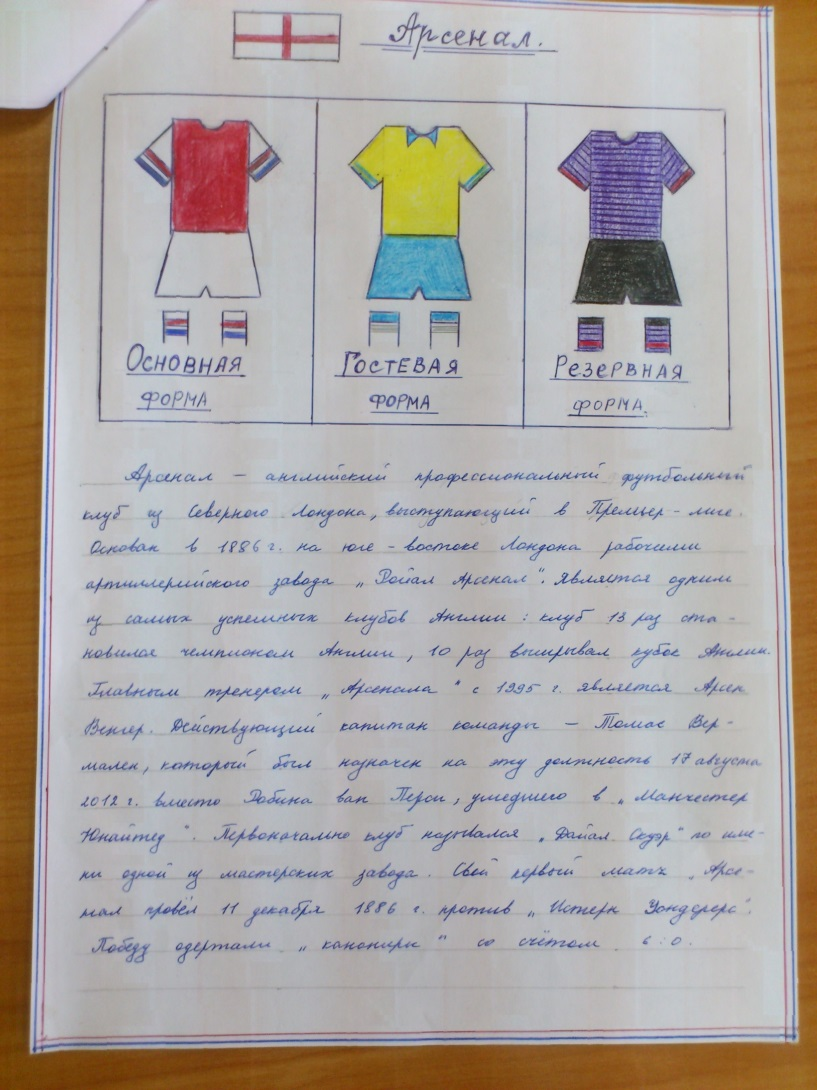 Арсенал.
ОСНОВНАЯ
ФОРМА
ГОСТЕВАЯ
ФОРМА
РЕЗЕРВНАЯ
ФОРМА
Арсенал – английский профессиональный футбольный
клуб из Северного Лондона, выступающий в Премьер-лиге.
Основан в 1886 г. на юго-востоке Лондона рабочими
артиллерийского завода „Ройал Арсенал". Является одним
из самых успешных клубов Англии: клуб 13 раз ста-
новился чемпионом Англии, 10 раз выигрывал кубок Англии.
Главным тренером „Арсенала" с 1995 г. является Арсен
Венгер. Действующий капитан команды – Томас Вер-
мален, который был назначен на эту должность 17 августа
2012 г. вместо Робина ван Перси, ушедшего в „Манчестер
Юнайтед". Первоначально клуб назывался „Дайал Сквэр" по име-
ни одной из мастерских завода. Свой первый матч „Арсе-
нал провёл 11 декабря 1886 г. против „Истерн Уондерерс".
Победу одержали „канониры" со счётом 6:0.